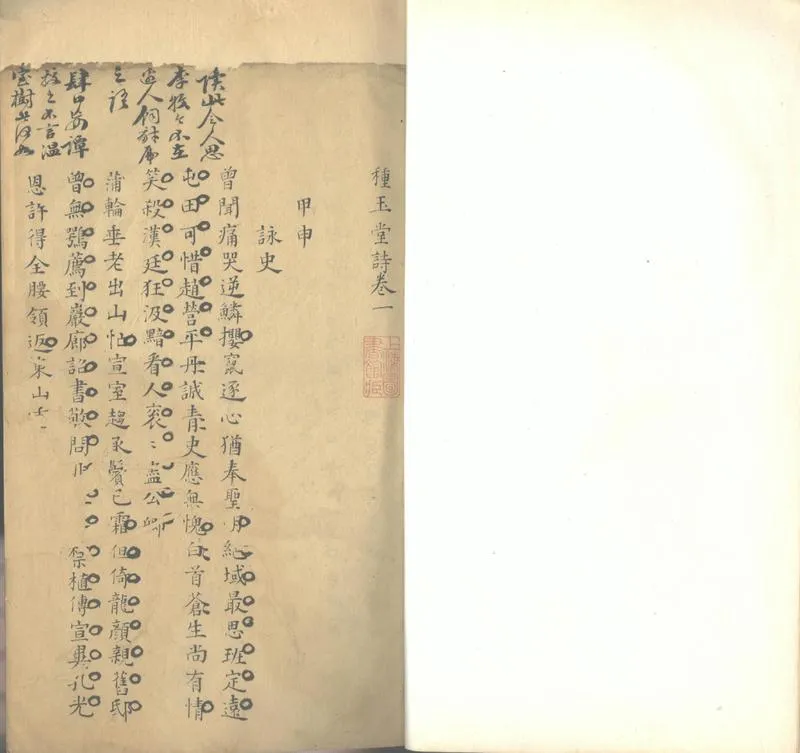 種玉堂詩卷一
甲申
詠史
曾聞痛哭逆鱗攖竄逐心猶奉聖明絕域最思班定遠
屯田可惜趙營平丹誠青史應無愧白首蒼生尚有情
笑殺漢廷狂汲黯看人衮〻盡公卿
蒲輪垂老出山怗宣室趨承鬢已霜但倚龍顏親舊邸
曾無鶚薦到巖廊詔書敬問 植傳宣異孔光
恩許得全腰領返東山
讀此令人思
李牧 不立
人
之語
肆口妄譚
不言溫
室樹
上海圖書館藏